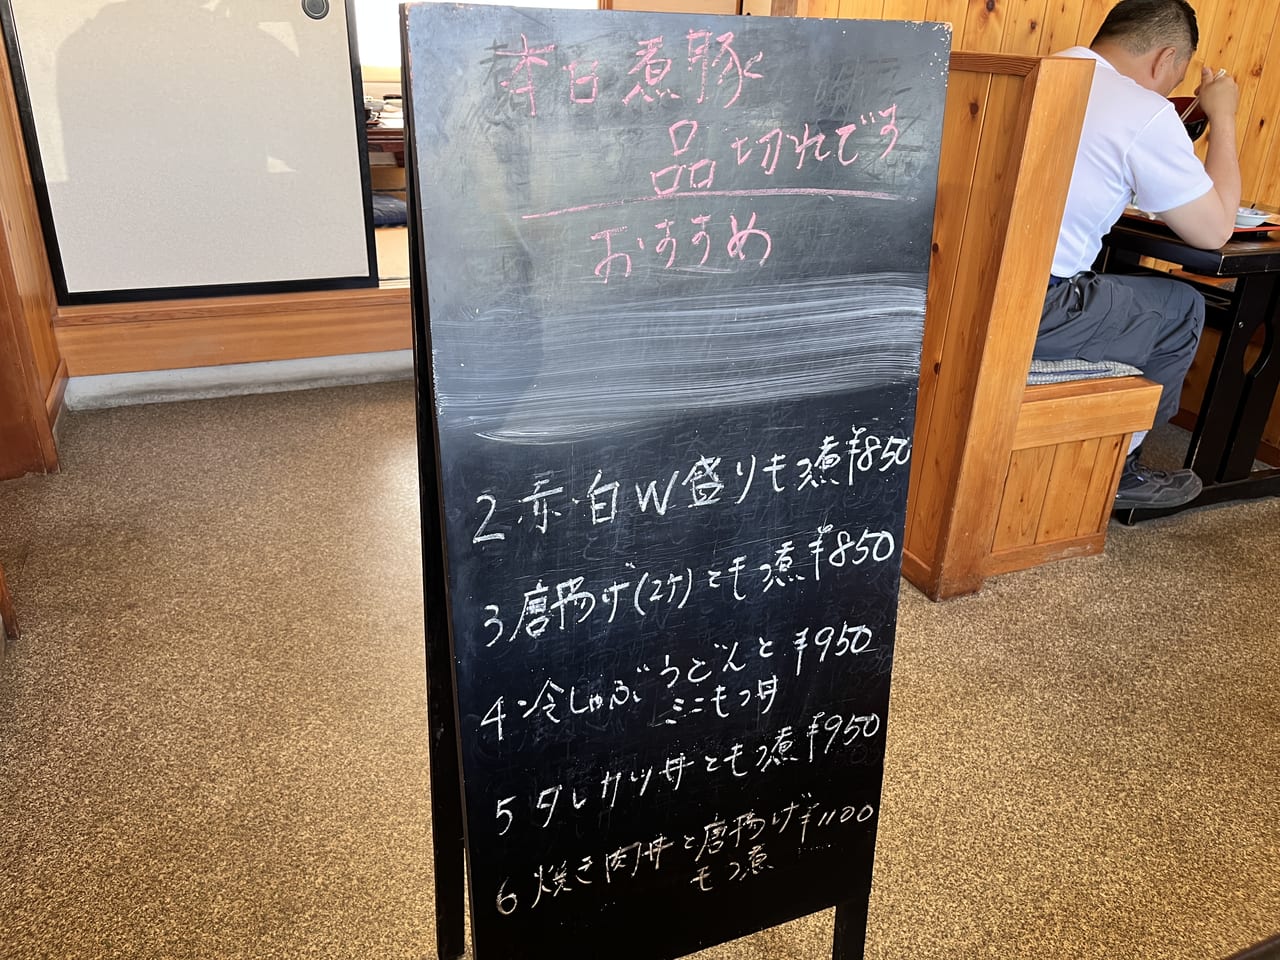 本日煮豚
品切れです
おすすめ
2 赤・白W盛りもつ煮 ¥850
3 唐揚げ(2ケ)ともつ煮 ¥850
4 冷しゃぶうどんと ¥950
ミニもつ丼
5 タレカツ丼ともつ煮 ¥950
6 焼き肉丼と唐揚げ ¥1100
もつ煮